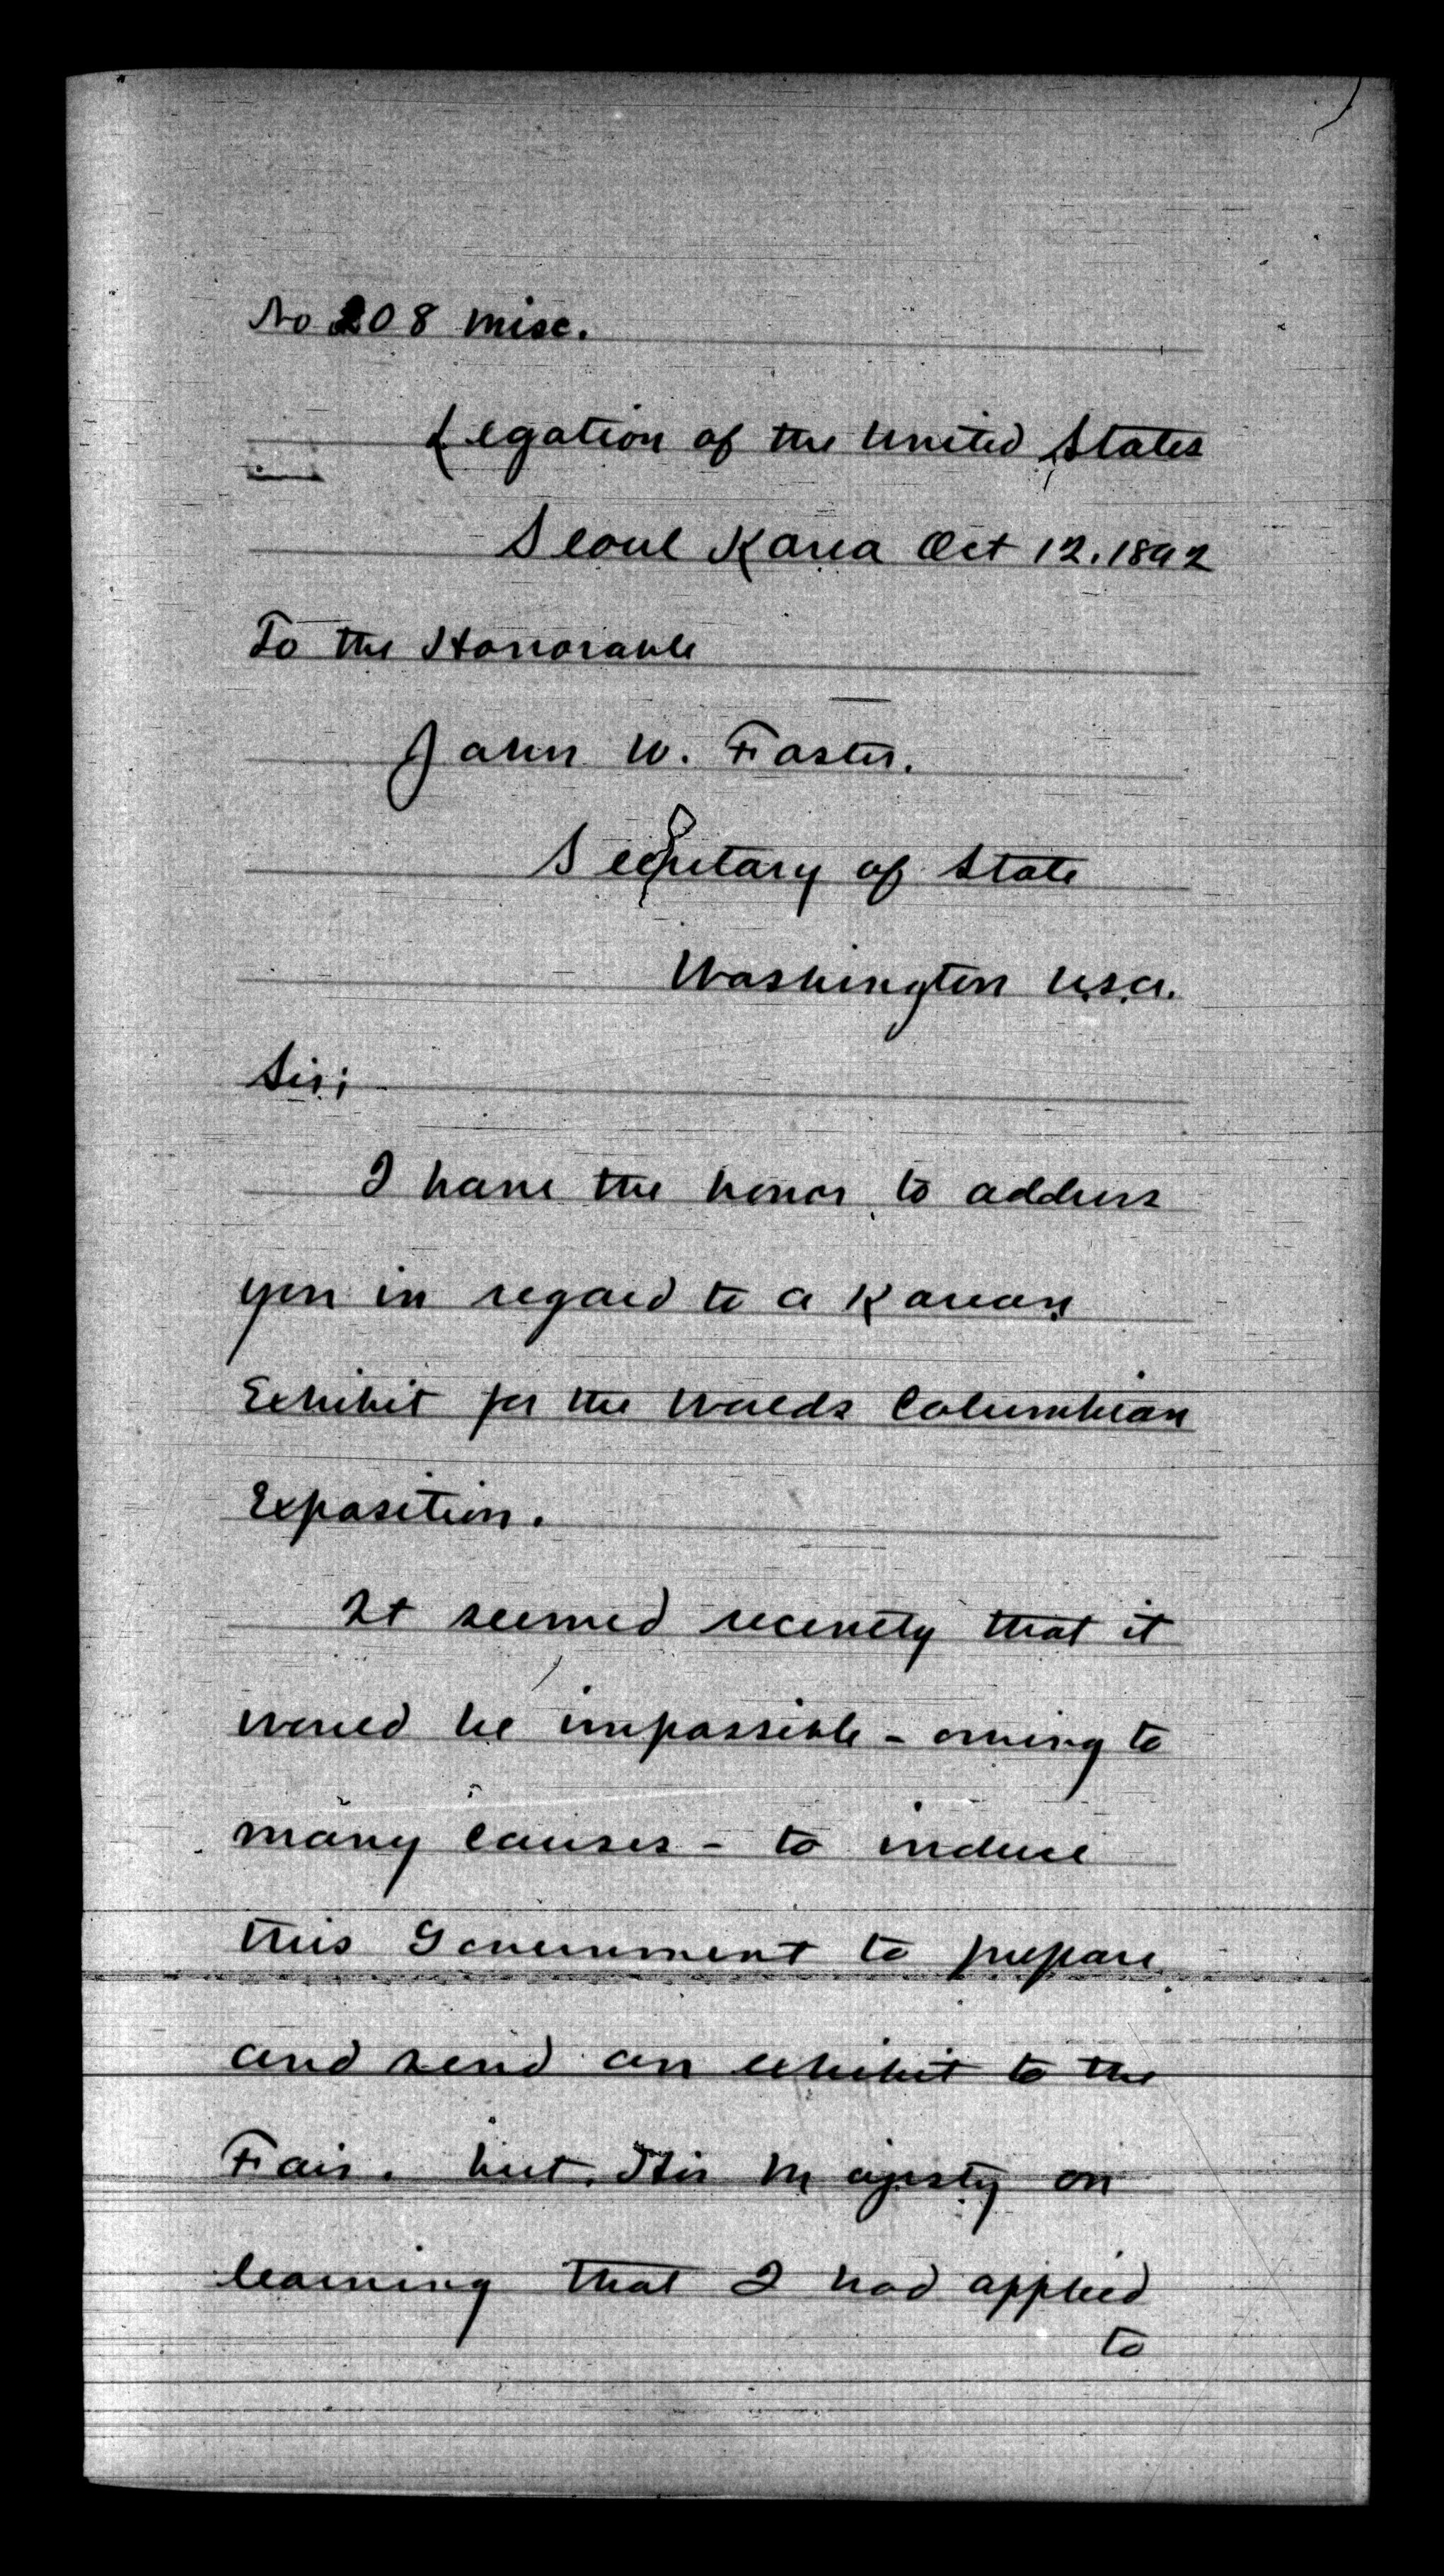 No 208 misc.
Legation of the United States
Seoul Korea Oct 12. 1892
To the Honorable
John W. Foster.
Secretary of State
Washington U.S.A.
Sir;
I have the honor to address
you in regard to a Korean
Exhibit for the Worlds Columbian
Exposition.
It seemed recently that it
would be impossible - owing to
many causes - to induce
this Government to prepare
and send an exhibit to the
Fair. but. His Majesty on
learning that I had applied
to